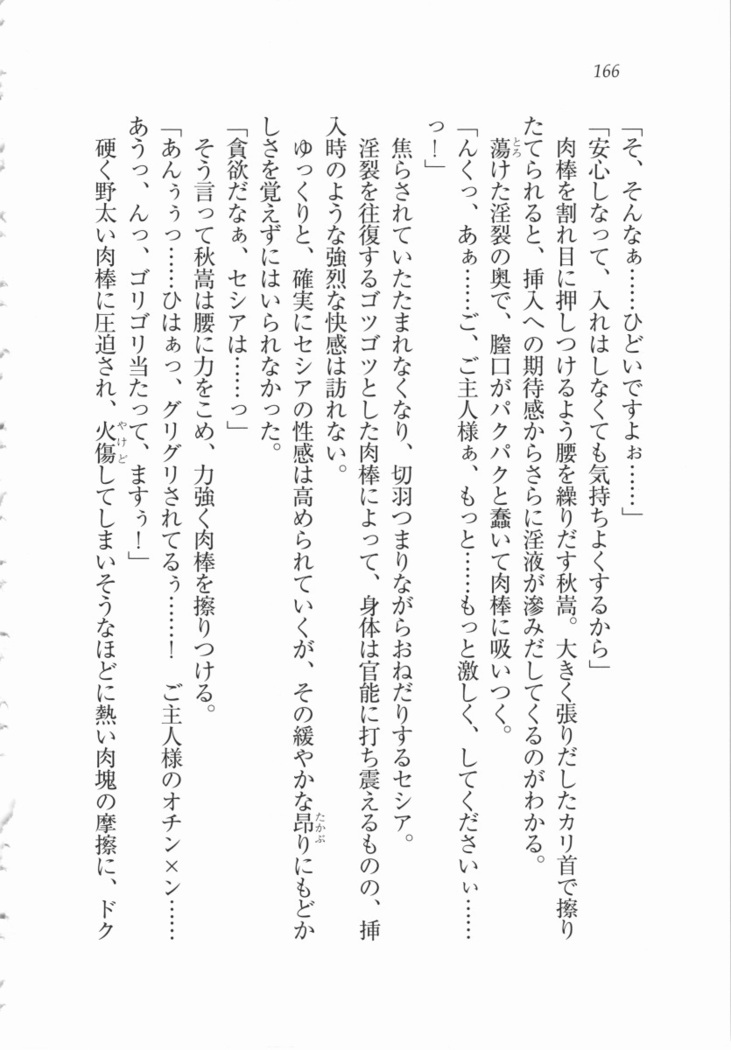 166
「そ、そんなぁ……ひどいですよぉ……」
「安心しなって、入れはしなくても気持ちよくするから」
肉棒を割れ目に押しつけるよう腰を繰りだす秋嵩。大きく張りだしたカリ首で擦り
たてられると、挿入への期待感からさらに淫液が滲みだしてくるのがわかる。
蕩けた淫裂の奥で、膣口がパクパクと蠢いて肉棒に吸いつく。
「んくっ、あぁ……ご、ご主人様ぁ、もっと……もっと激しく、してくださいぃ……
っ！」
焦らされていたたまれなくなり、切羽つまりながらおねだりするセシア。
淫裂を往復するゴツゴツとした肉棒によって、身体は官能に打ち震えるものの、挿
入時のような強烈な快感は訪れない。
ゆっくりと、確実にセシアの性感は高められていくが、その緩やかな昂りにもどか
しさを覚えずにはいられなかった。
「貪欲だなぁ、セシアは……っ」
そう言って秋嵩は腰に力をこめ、力強く肉棒を擦りつける。
「あんぅぅっ……ひはぁっ、グリグリされてるぅ……！　ご主人様のオチン×ン……
あうっ、んっ、ゴリゴリ当たって、ますぅ！」
硬く野太い肉棒に圧迫され、火傷してしまいそうなほどに熱い肉塊の摩擦に、ドク